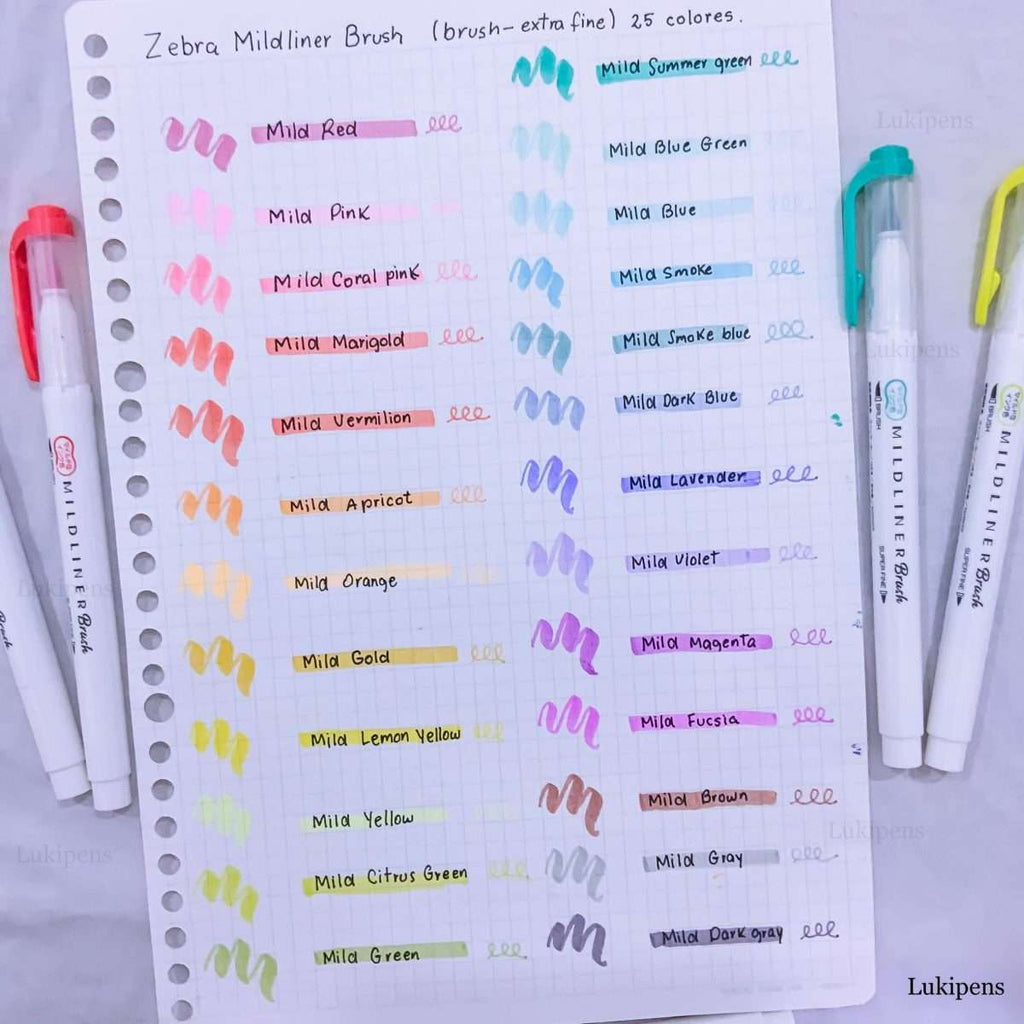 Zebra Mildliner Brush (brush-extra fine) 25 colores.
Mild Red
Mild Pink
Mild Coral pink
Mild Marigold
Mild Vermilion
Mild Apricot
Mild Orange
Mild Gold
Mild Lemon Yellow
Mild Yellow
Mild Citrus Green
Mild Green
Mild Summer green
Mild Blue Green
Mild Blue
Mild Smoke
Mild Smoke blue
Mild Dark Blue
Mild Lavender
Mild Violet
Mild Magenta
Mild Fucsia
Mild Brown
Mild Gray
Mild Dark gray
MILDLINER Brush
Brush
BRUSH MILDLINER Brush SUPER FINE
BRUSH MILDLINER Brush SUPER FINE
Lukipens
Lukipens
Lukipens
Lukipens
Lukipens
Lukipens